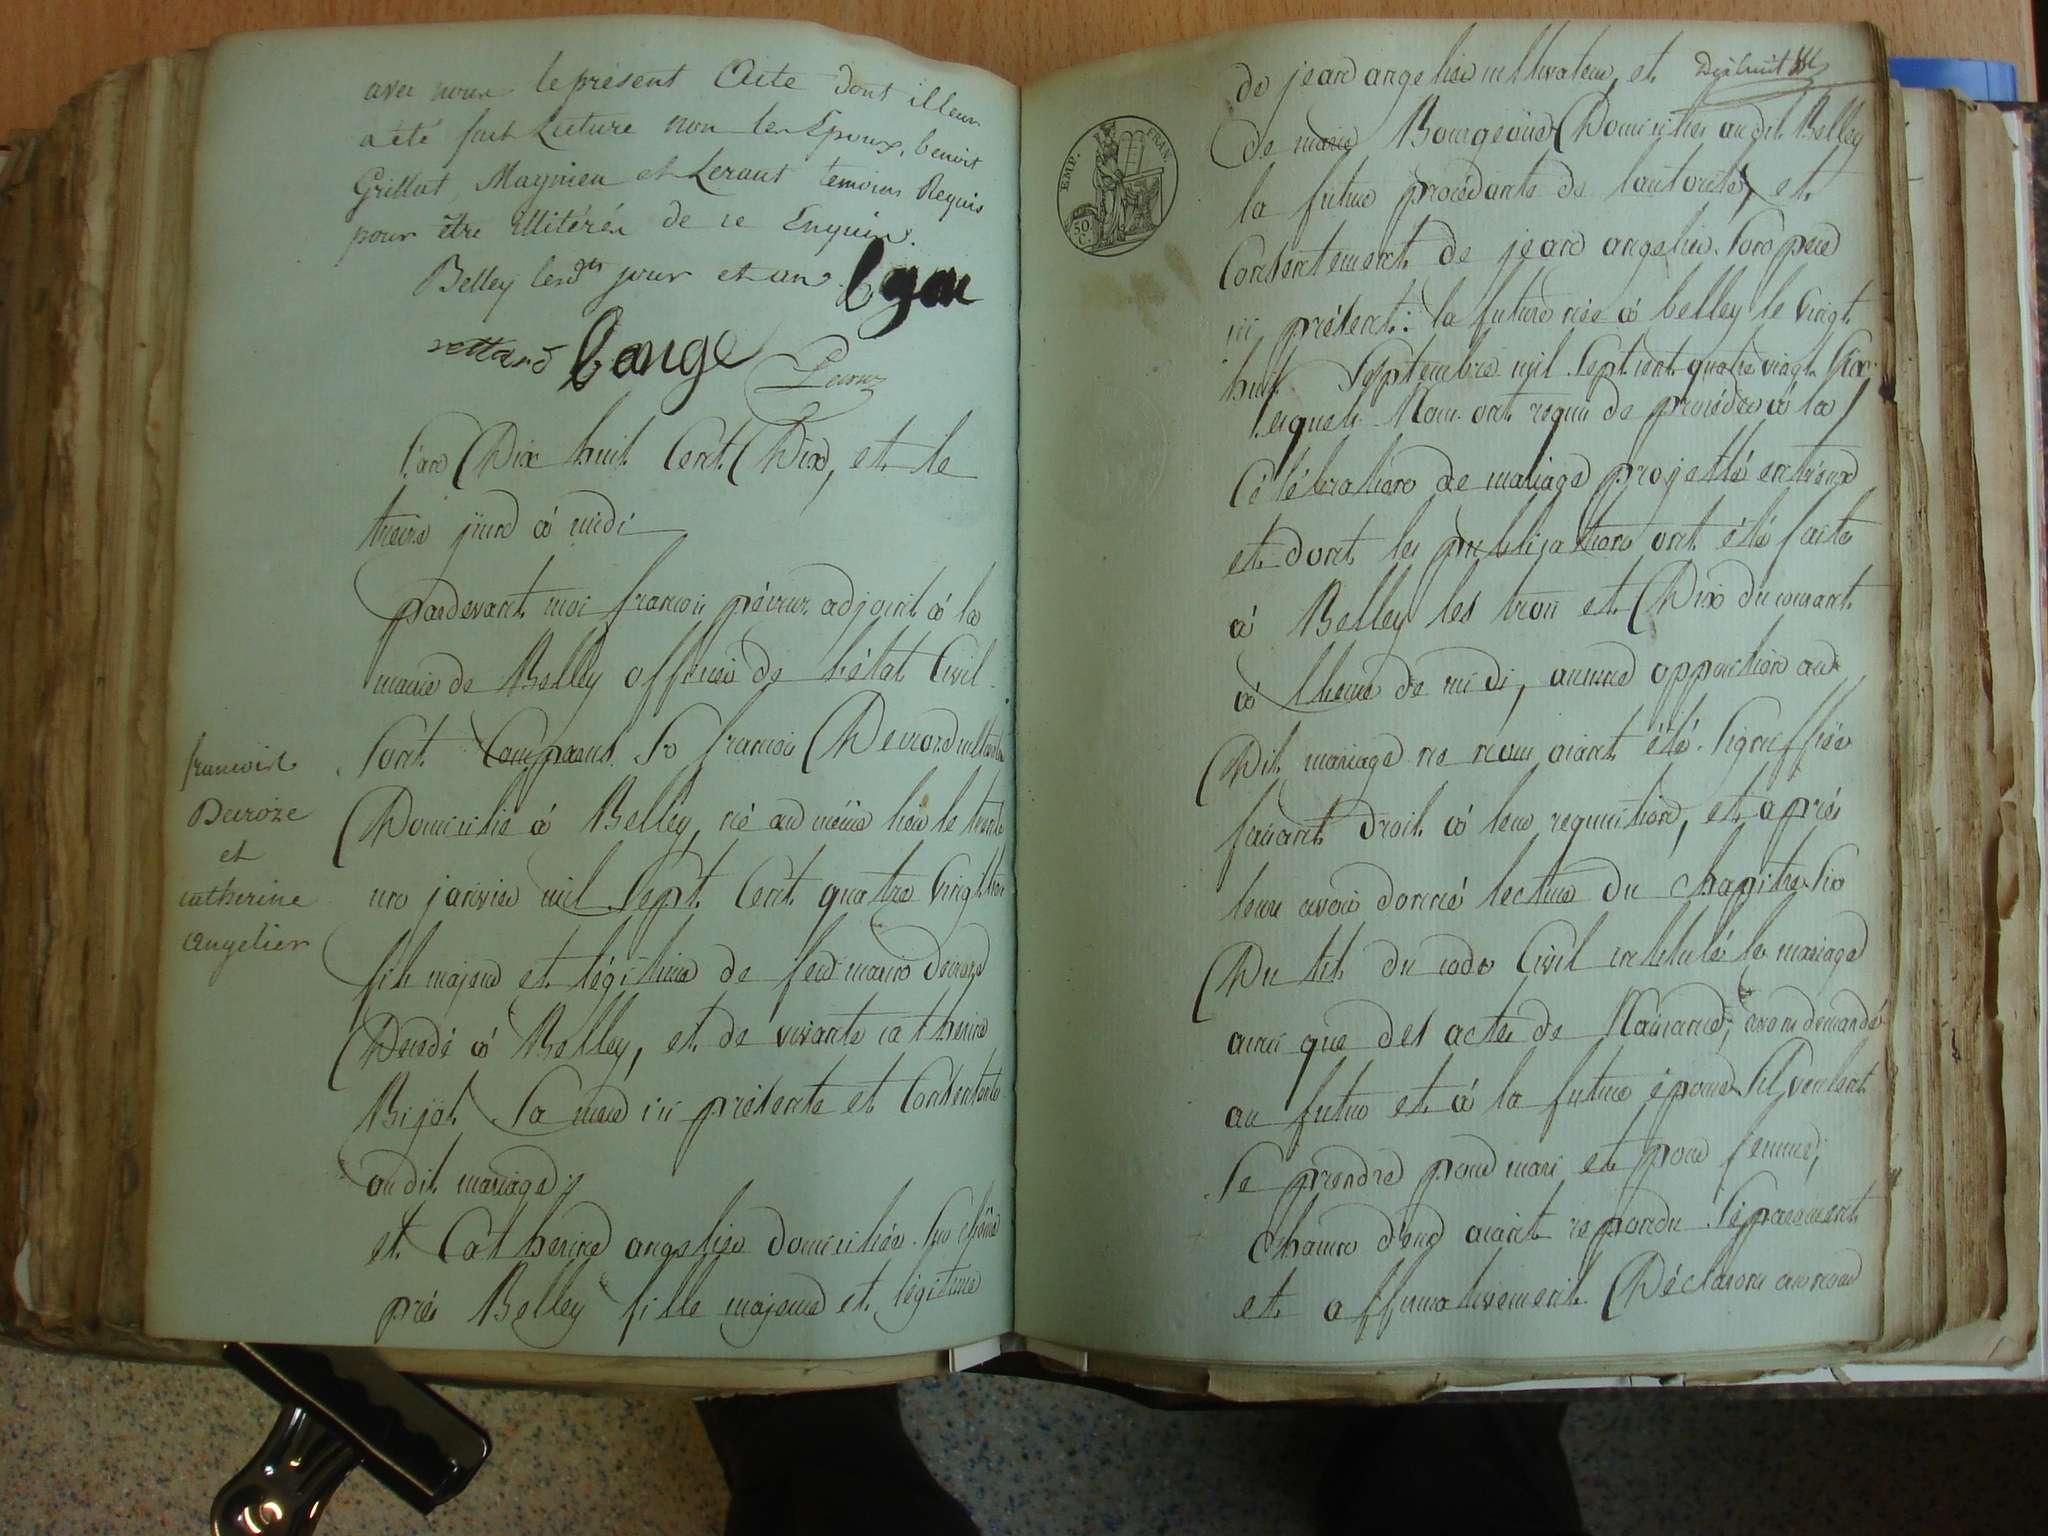 avec nous le présent Acte dont illeur
a été fait Lecture non les Epoux, benoit
Grillat, Magnien et Lerant temoins Requis
pour être illitérés de ce Enquis.
Belley lesd jour et an Lyon
Lange
l'an Dix huit Cent Dix, et le
treize juin à midi
pardevant moi francois adjoint à la
mairie de Belley officier de l'état Civil
sont Comparus Sr francois Deroze
Domicilié à Belley, né au même lieu le trente
un janvier mil sept Cent quatre vingt
fils majeur et légitime de feu Deroze
Décédé à Belley, et de vivante catherine
Bijot sa mere ici présente et Consentante
audit mariage;
et Catherine angelier domiciliée
près Belley fille majeure et légitime
francois
Deroze
et
catherine
Angelier
Dixhuit
de jean angelier cultivateur, et
de marie Bourgeois Domiciliés audit Belley
la future procédante de l'autorité, et
Consentement de jean angelier son pere
ici présent: la future née à belley le vingt
huit Septembre mil Sept cent quatre vingt six
lesquels Nous ont requis de procéder à la
Célébration de mariage projetté entreux
et dont les publications ont été faite
à Belley les trois et Dix du courant
à l'heure de midi, aucune opposition au
Dit mariage ne nous aiant été Signiffiée
faisant Droit à leur requisition, et après
leur avoir donné lecture du chapitre Six
Du tit. du code Civil intitulé le mariage
ainsi que des actes de Naissance, avons demandé
au futur et à la future épouse S'il veulent
Se prendre pour mari et pour femme;
chacun d'eux aiant repondu Séparement
et affirmativement Déclarons au nom
EMP. FRAN.
50.
C.